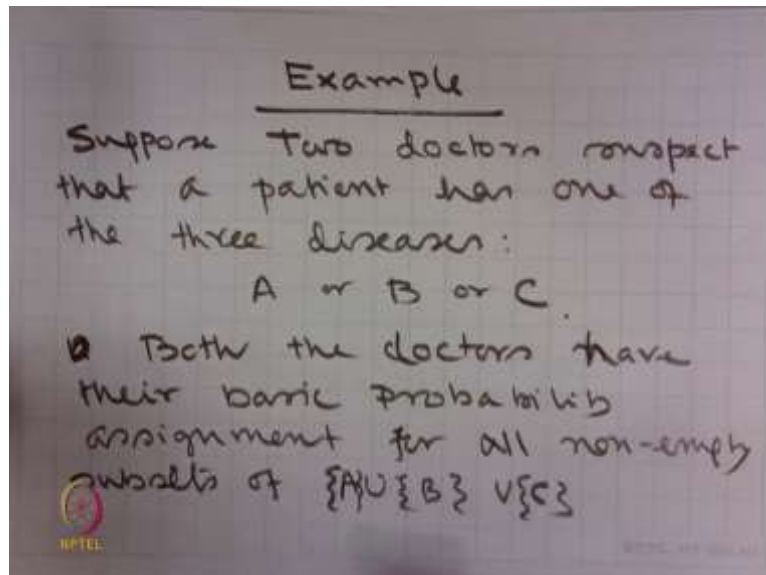 Example
Suppose Two doctors suspect
that a patient has one of
the three diseases:
A or B or C.
Both the doctors have
their basic probability
assignment for all non-empty
subsets of {A}∪{B} ∪{C}
NPTEL